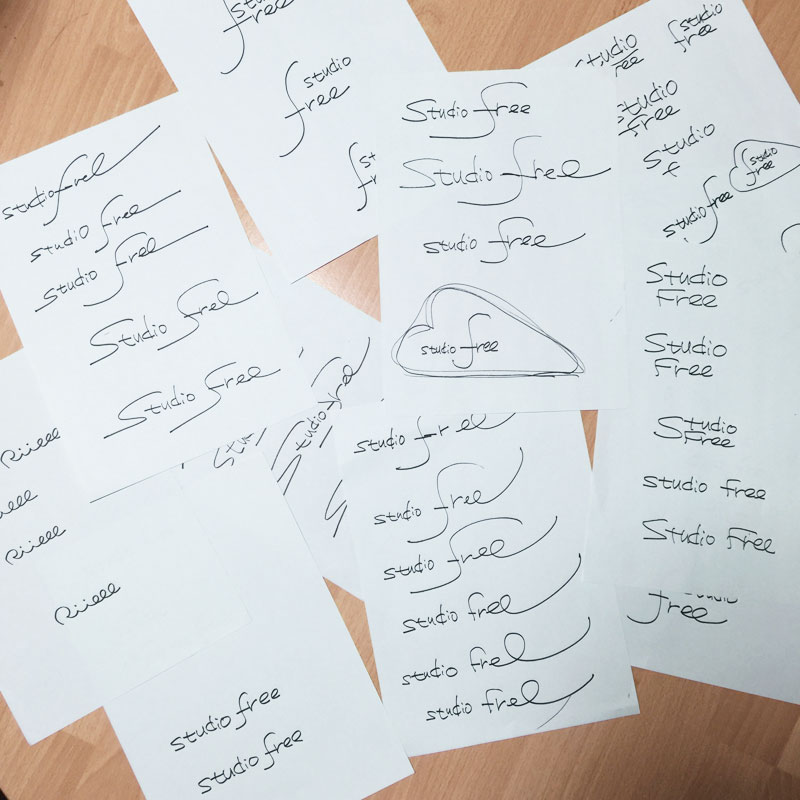 studio
free
studio
free
studio free
studio free
studio free
Studio free
Studio free
Studio free
Studio free
studio free
studio free
studio
free
studio
free
studio
free
studio
f
studio
free
studio free
Studio
Free
Studio
Free
Studio
Free
studio free
Studio Free
free
studio free
studio free
studio free
studio free
studio free
studio free
Studio free
studio free
studio free